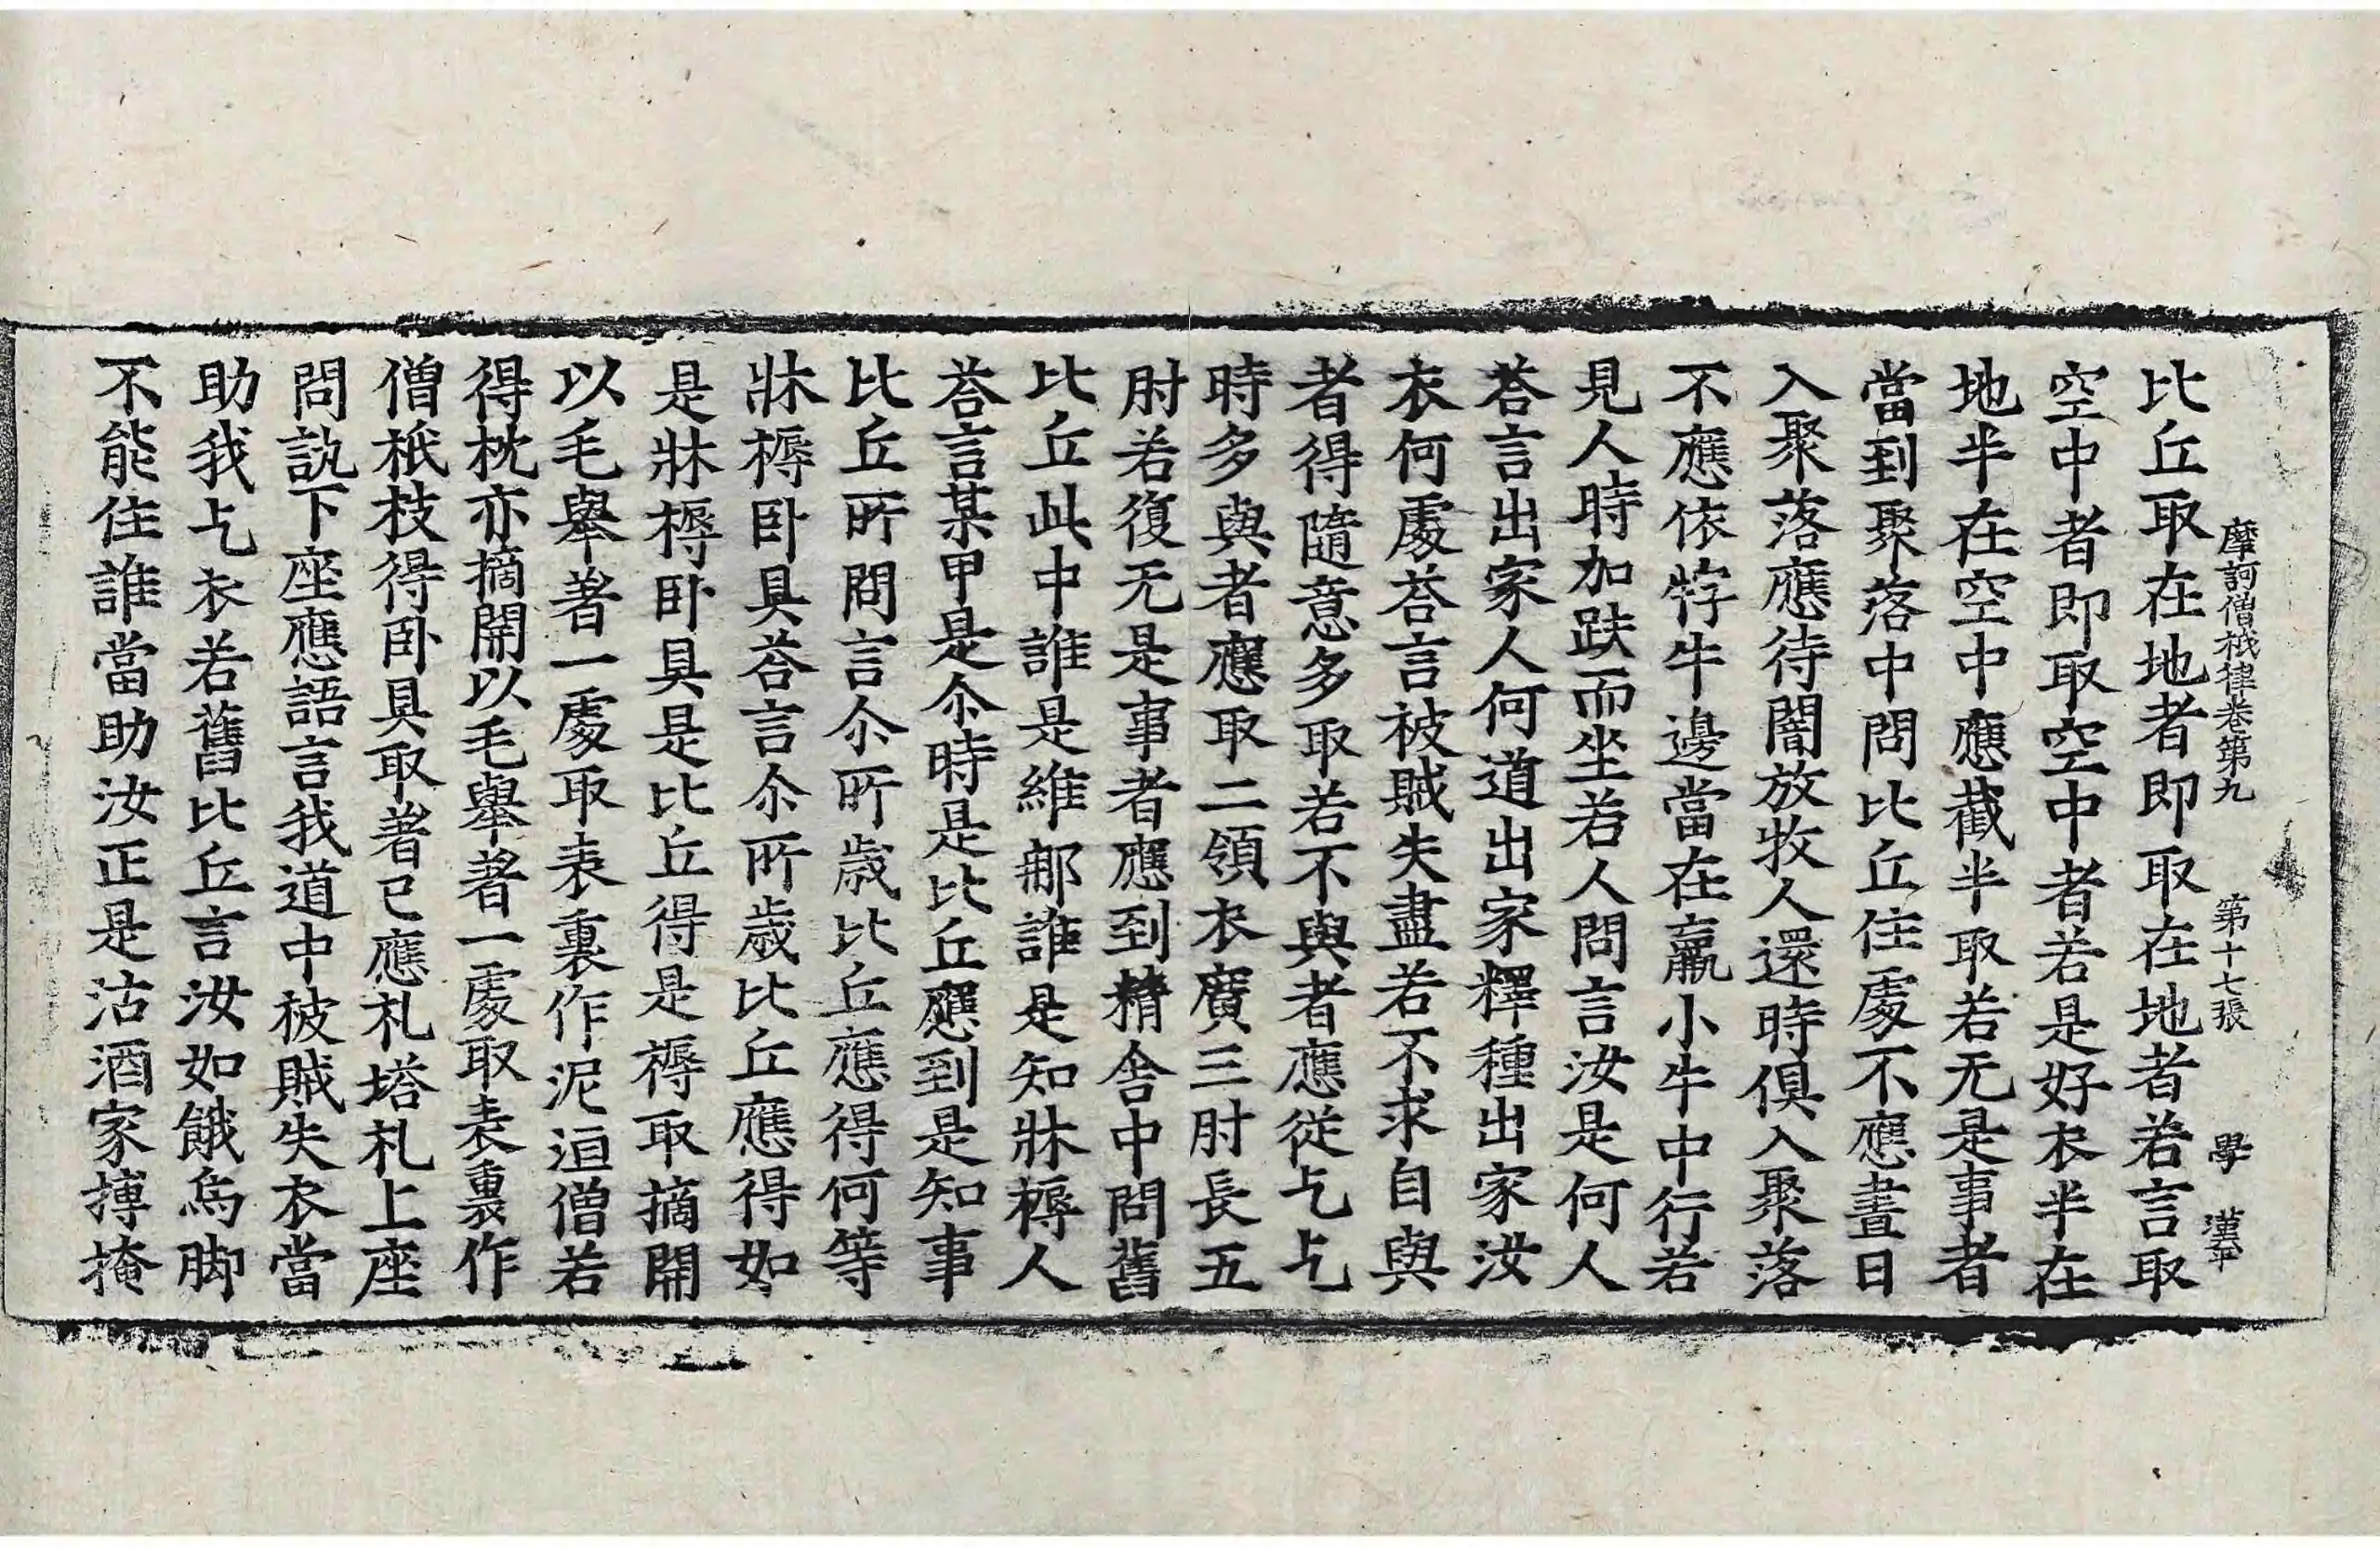 摩訶僧祇律卷第九 第十七張 學 漢奉
比丘取在地者即取在地者若言取
空中者即取空中者若是好衣半在
地半在空中應截半取若无是事者
當到聚落中問比丘住處不應晝日
入聚落應待闇放牧人還時俱入聚落
不應依牸牛邊當在羸小牛中行若
見人時加趺而坐若人問言汝是何人
荅言出家人何道出家釋種出家汝
衣何處荅言被賊失盡若不求自與
者得隨意多取若不與者應從乞乞
時多與者應取二領衣廣三肘長五
肘若復无是事者應到精舍中問舊
比丘此中誰是維那誰是知牀褥人
荅言某甲是尒時是比丘應到是知事
比丘所問言尒所歲比丘應得何等
牀褥卧具荅言尒所歲比丘應得如
是牀褥卧具是比丘得是褥取摘開
以毛舉著一處取表裏作泥洹僧若
得枕亦摘開以毛舉著一處取表裏作
僧祇枝得卧具取著已應礼塔礼上座
問訊下座應語言我道中被賊失衣當
助我乞衣若舊比丘言汝如餓烏脚
不能住誰當助汝正是沽酒家摶掩